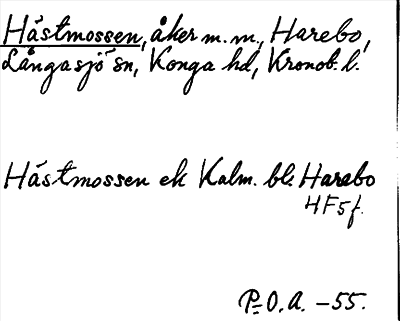 Hästmossen, åker m.m., Harebo,
Långasjö sn, Konga hd, Kronob. l.
Hästmossen ek Kalm. bl. Harebo
HF5f.
P.O.A. -55.